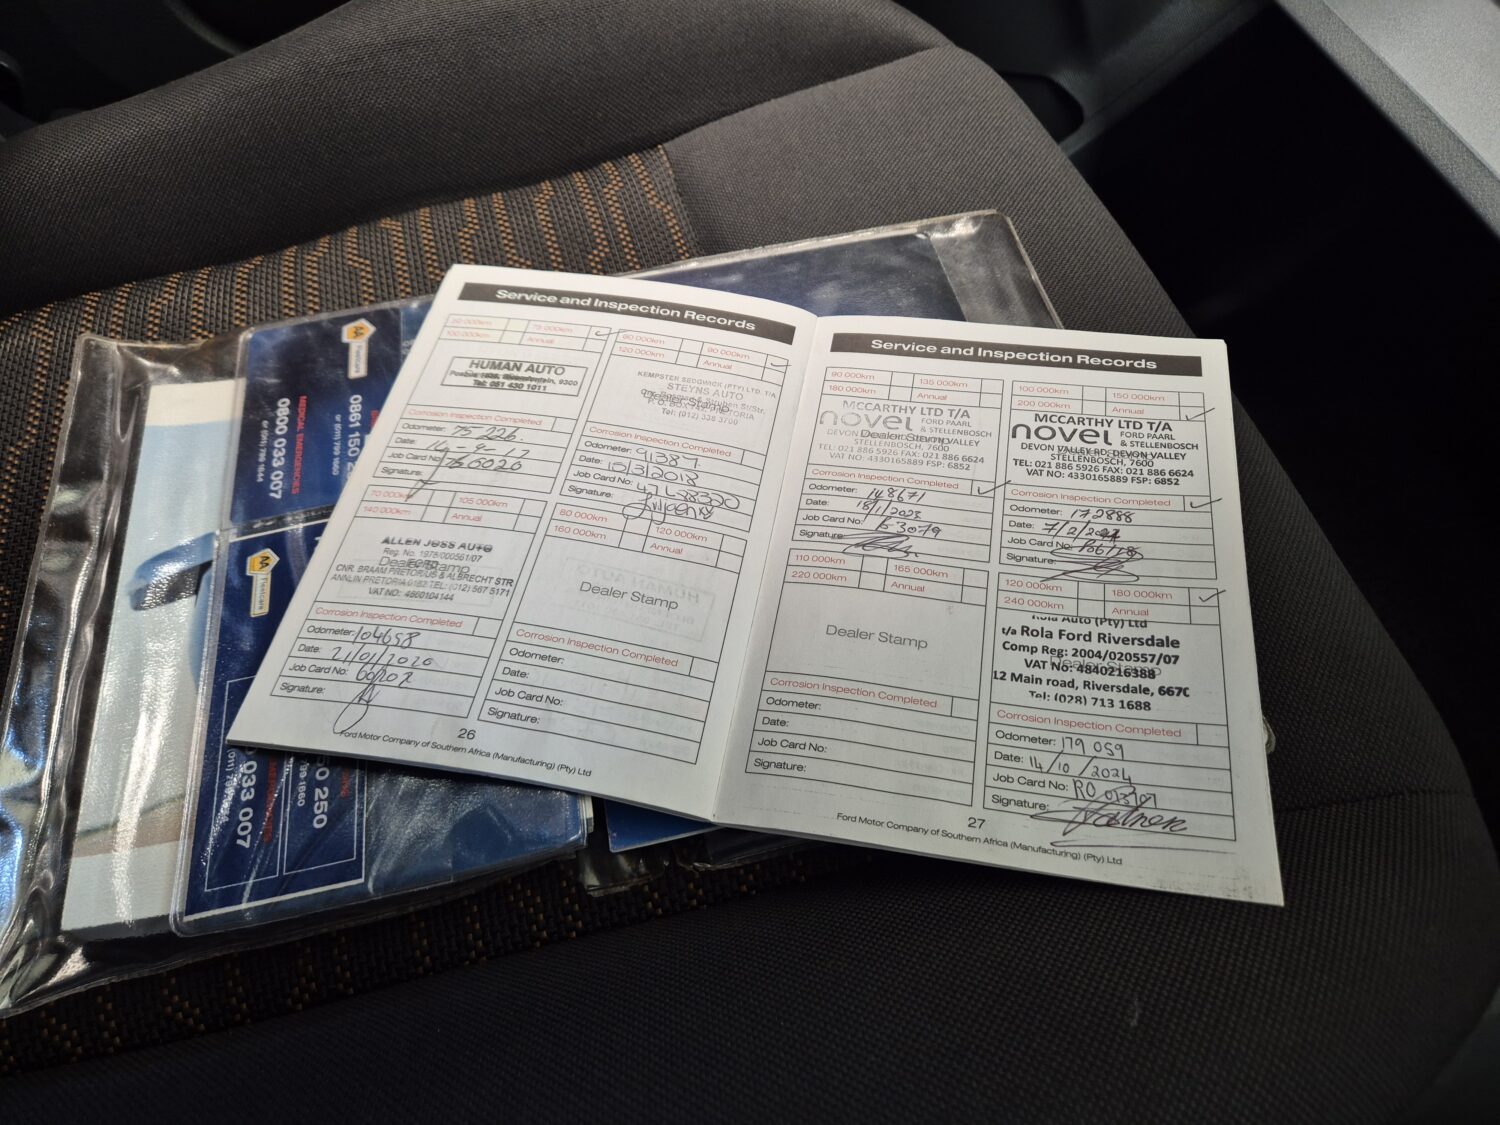 Service and Inspection Records
75 000km
Annual
HUMAN AUTO
Tel: 051 430 1011
Corrosion Inspection Completed
Odometer: 75 226.
Date:
Job Card No:
Signature:
90 000km 90 000km
120 000km Annual
KEMPSTER SEDGWICK (PTY) LTD. T/A
STEYNS AUTO
Tel: (012) 338-3700
Corrosion Inspection Completed
Odometer: 91387
Date: 13/3/2018
Job Card No:
Signature:
70 000km 105 000km
140 000km Annual
ALLEN JOSS AUTO
Reg. No. 1976/000561/07
Dealer Stamp
CNR. BRAAM PRETORIUS & ALBRECHT STR
ANNLIN PRETORIA 0182 TEL: (012) 567 5171
VAT NO: 4860104144
Corrosion Inspection Completed
Odometer: 104698
Date: 21/01/2020
Job Card No: 60202
Signature:
80 000km 120 000km
160 000km Annual
Dealer Stamp
Corrosion Inspection Completed
Odometer:
Date:
Job Card No:
Signature:
26
Ford Motor Company of Southern Africa (Manufacturing) (Pty) Ltd
Service and Inspection Records
90 000km 135 000km
180 000km Annual
MCCARTHY LTD T/A
novel FORD PAARL
& STELLENBOSCH
Dealer Stamp
STELLENBOSCH, 7600
TEL: 021 886 5926 FAX: 021 886 6624
VAT NO: 4330165889 FSP: 6852
Corrosion Inspection Completed
Odometer: 148671
Date: 18/1/2023
Job Card No:
Signature:
100 000km 150 000km
200 000km Annual
MCCARTHY LTD T/A
novel FORD PAARL
& STELLENBOSCH
DEVON VALLEY RD, DEVON VALLEY
STELLENBOSCH, 7600
TEL: 021 886 5926 FAX: 021 886 6624
VAT NO: 4330165889 FSP: 6852
Corrosion Inspection Completed
Odometer: 172888
Date: 7/2/2024
Job Card No:
Signature:
110 000km 165 000km
220 000km Annual
Dealer Stamp
Corrosion Inspection Completed
Odometer:
Date:
Job Card No:
Signature:
120 000km 180 000km
240 000km Annual
Rola Auto (Pty) Ltd
t/a Rola Ford Riversdale
Comp Reg: 2004/020557/07
Dealer Stamp
VAT No: 4840216388
12 Main road, Riversdale, 6670
Tel: (028) 713 1688
Corrosion Inspection Completed
Odometer: 179 059
Date: 14/10/2024
Job Card No:
Signature:
27
Ford Motor Company of Southern Africa (Manufacturing) (Pty) Ltd
AA
0861 150 250
or (011) 799 1660
MEDICAL EMERGENCIES
0800 033 007
AA
033 007